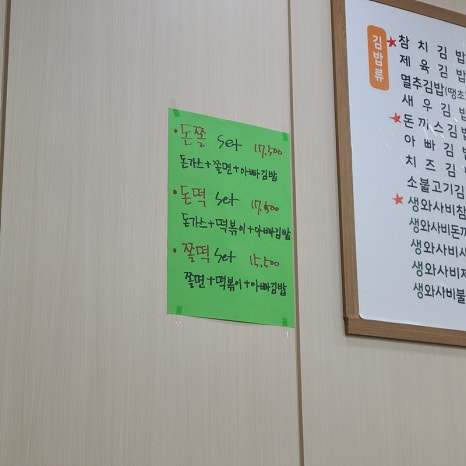 • 돈쫄 set 17,500
돈가스+쫄면+아빠김밥
• 돈떡 set
돈가스+떡볶이+아빠김밥
• 쫄떡 set 15,500
쫄면+떡볶이+아빠김밥
김밥류
★참치김밥
제육김밥
멸추김밥(땡초
새우김밥
★돈까스김밥
아빠김밥
치즈김
소불고기김
★생와사비참
생와사비돈까
생와사비새
생와사비제
생와사비불